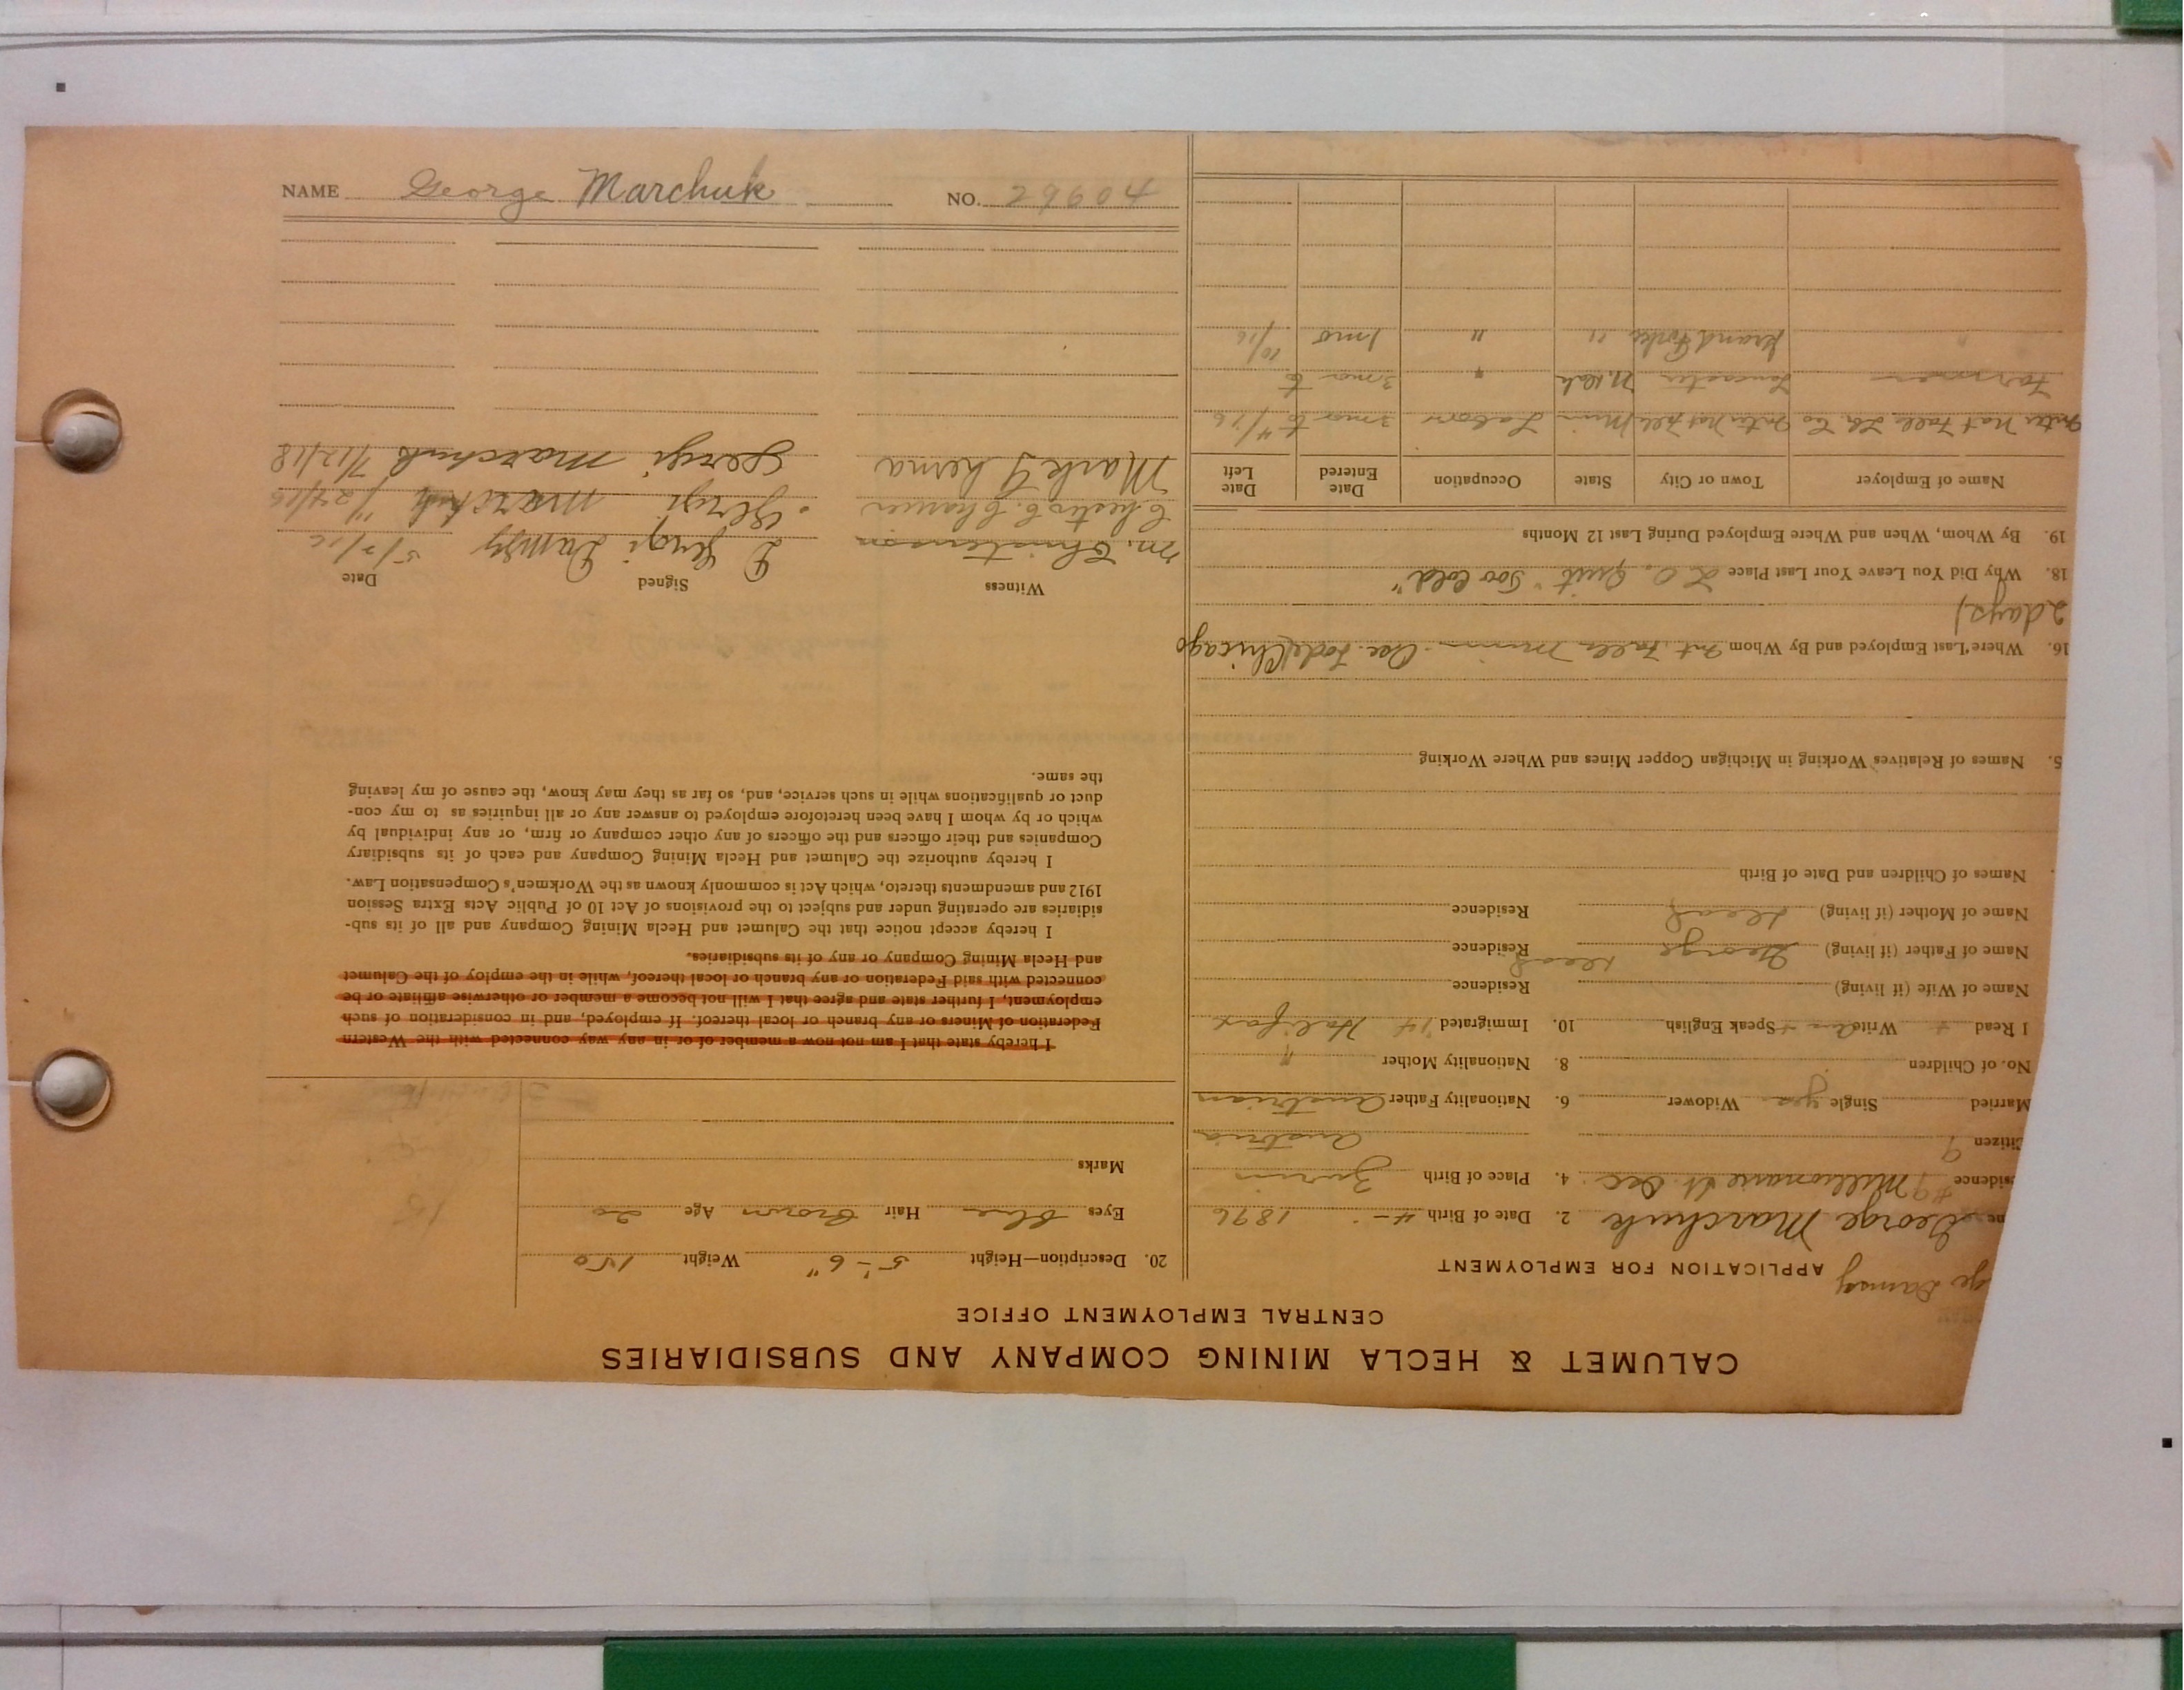 CALUMET & HECLA MINING COMPANY AND SUBSIDIARIES
CENTRAL EMPLOYMENT OFFICE
APPLICATION FOR EMPLOYMENT
George Marchuk 2. Date of Birth 4 - 1896
sidence #9 Millionaire St Oec. 4. Place of Birth
Citizen Austria
Married Single yes Widower 6. Nationality Father Austrian
No. of Children 8. Nationality Mother "
I Read + Write Speak English 10. Immigrated 14 Halifax
Name of Wife (if living) Residence
Name of Father (if living) George Dead Residence
Name of Mother (if living) Dead Residence
Names of Children and Date of Birth
5. Names of Relatives Working in Michigan Copper Mines and Where Working
16. Where Last Employed and By Whom Int. Falls Minn. Chicago
2 days)
18. Why Did You Leave Your Last Place Quit "Too Cold"
19. By Whom, When and Where Employed During Last 12 Months
Name of Employer Town or City State Occupation Date Entered Date Left
Inter Nat Falls Co Inter Nat Falls Minn Labor 3 mos to 4/16
Farmer N. Dak " 3 mos to
" Grand Forks " " 1 mo 10/16
20. Description—Height 5'-6" Weight 150
Eyes Blue Hair Brown Age 20
Marks
I hereby state that I am not now a member of or in any way connected with the Western
Federation of Miners or any branch or local thereof. If employed, and in consideration of such
employment, I further state and agree that I will not become a member or otherwise affiliate or be
connected with said Federation or any branch or local thereof, while in the employ of the Calumet
and Hecla Mining Company or any of its subsidiaries.
I hereby accept notice that the Calumet and Hecla Mining Company and all of its sub-
sidiaries are operating under and subject to the provisions of Act 10 of Public Acts Extra Session
1912 and amendments thereto, which Act is commonly known as the Workmen's Compensation Law.
I hereby authorize the Calumet and Hecla Mining Company and each of its subsidiary
Companies and their officers and the officers of any other company or firm, or any individual by
which or by whom I have been heretofore employed to answer any or all inquiries as to my con-
duct or qualifications while in such service, and, so far as they may know, the cause of my leaving
the same.
Witness Signed Date
M. Christenson
Chester C. 11/24/16
Mark Georgi Marchuk 7/12/18
NAME George Marchuk NO. 29604